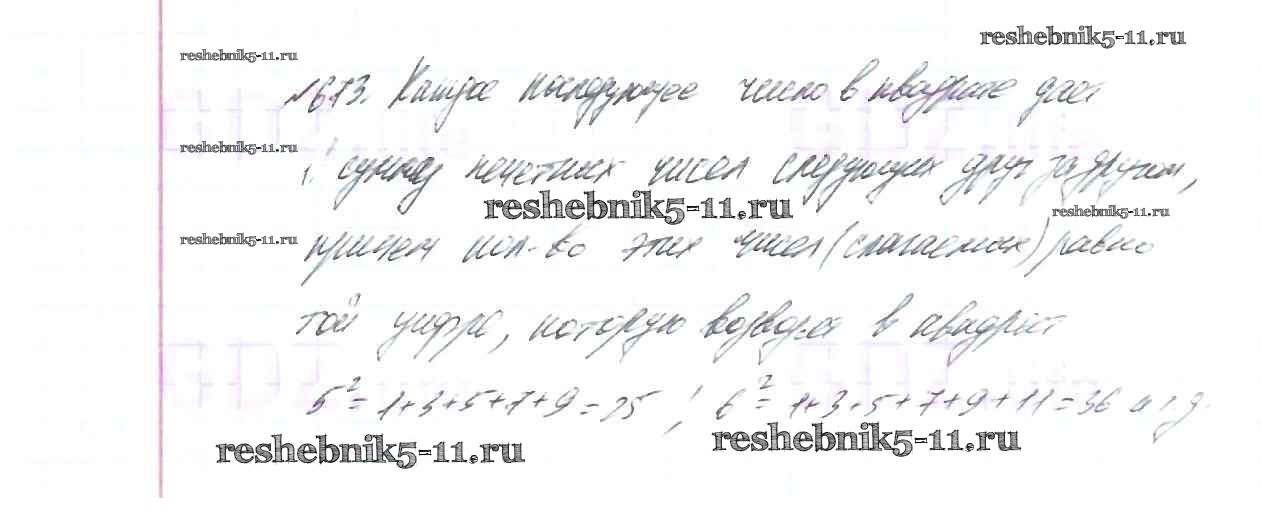 reshebnik5-11.ru
reshebnik5-11.ru
№613. Каждое последующее число в квадрате дает
reshebnik5-11.ru
сумму нечетных чисел следующих друг за другом,
reshebnik5-11.ru
reshebnik5-11.ru
reshebnik5-11.ru
причем кол-во этих чисел (слагаемых) равно
той цифре, которую возводят в квадрат
5² = 1+3+5+7+9 = 25; 6² = 1+3+5+7+9+11 = 36 и т.д.
reshebnik5-11.ru
reshebnik5-11.ru